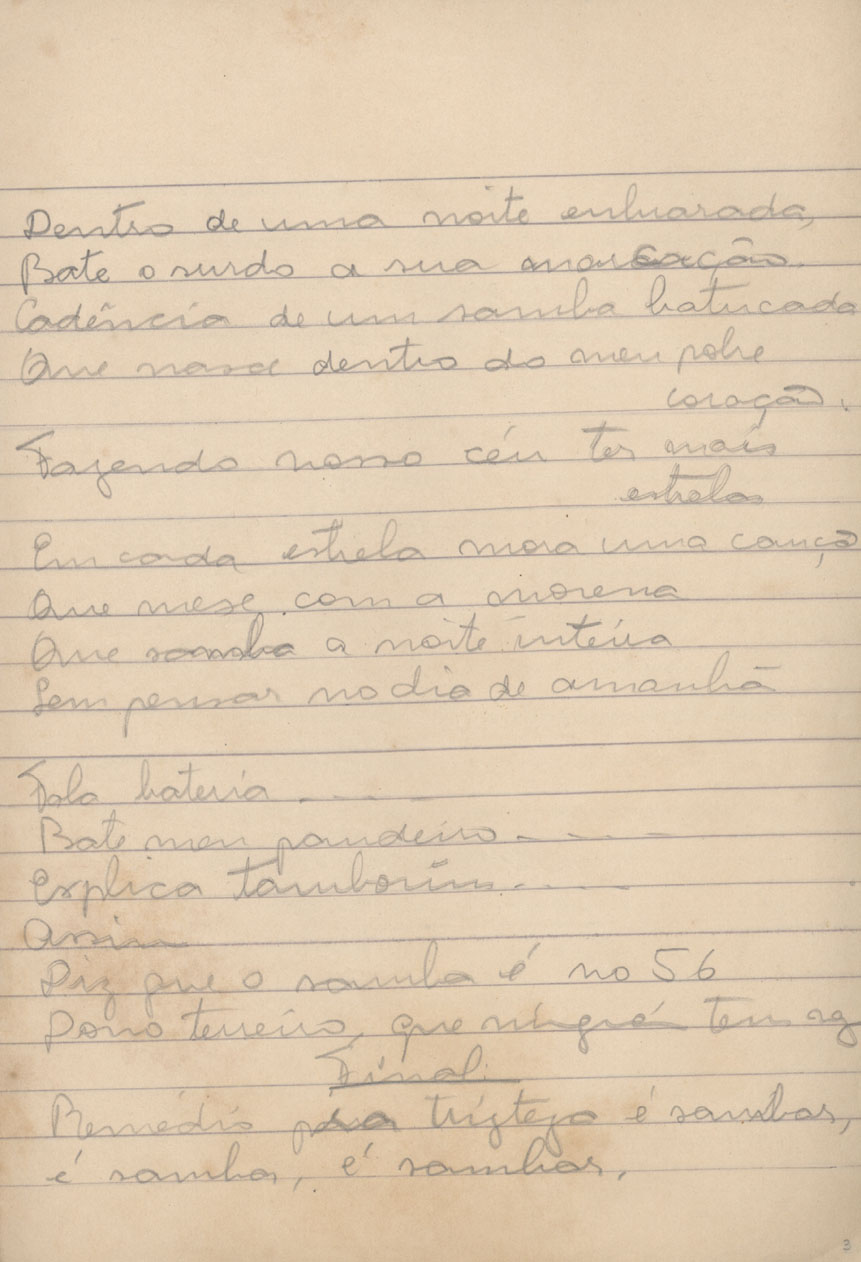 Dentro de uma noite enluarada,
Bate o surdo a sua marcação.
Cadência de um samba batucada
Que nasce dentro do meu pobre
coração.
Fazendo nosso céu ter mais
estrelas
Em cada estrela mora uma canção
Que mexe com a morena
Que samba a noite inteira
Sem pensar no dia de amanhã
Fala bateria ....
Bate meu pandeiro ....
Explica tamborim ....
Assim
Diz que o samba é no 56
Dono terreiro, que ninguém tem
Final
Remédio pra tristeza é sambar,
é sambar, é sambar,
3